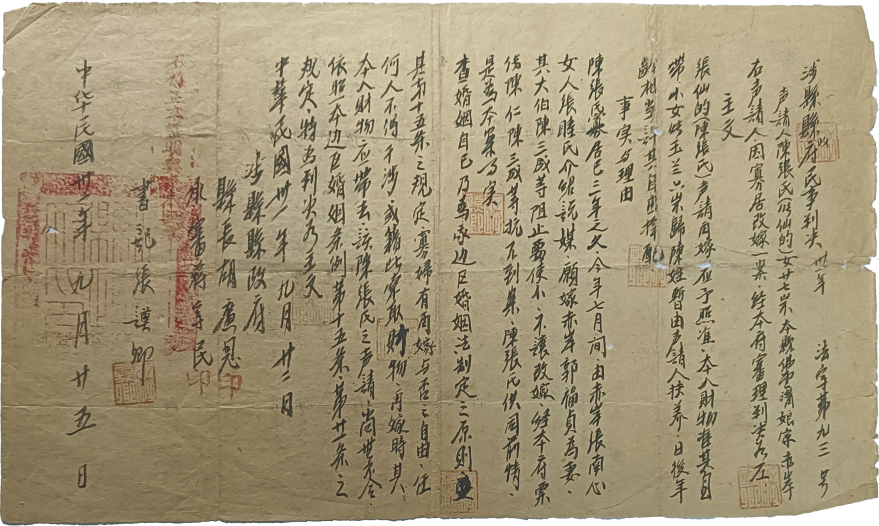 涉縣縣府民事判决 卅一年 法字第九三號
声請人陳張氏 仙的 女 廿七岁 本縣 娘家赤岸
右声請人因寡居改嫁一案，经本府審理判决为左
主文
張仙的陳張氏声請再嫁，应予照准，本人財物准其自
带，小女玉兰六岁归陳姓，暂由声請人扶养，日後年
龄相当，許其自由择配
事实与理由
陳張氏寡居已三年之久，今年七月間由赤岸張南心
女人張時氏介绍說媒，願嫁赤岸郭福貞為妻，
其大伯陳三成等阻止要使小，不讓改嫁，经本府票
傳陳仁陳三成等抗不到案，陳張氏供同前情，
是為本案事实
查婚姻自已乃為本边区婚姻法制定之原则，並
其第十五条之規定，寡婦有再嫁与否之自由，任
何人不得干涉，或籍此索取財物，再嫁時其
本人財物应带去，該陳張氏之声請尚无不合，
依照本边区婚姻条例第十五条第廿一条之
规定，特为判决为主文
中華民國卅一年九月廿二日
涉縣縣政府
縣長胡廣恩 印
承審蔣享民 印
書記張漢卿
中华民國卅一年九月廿五日